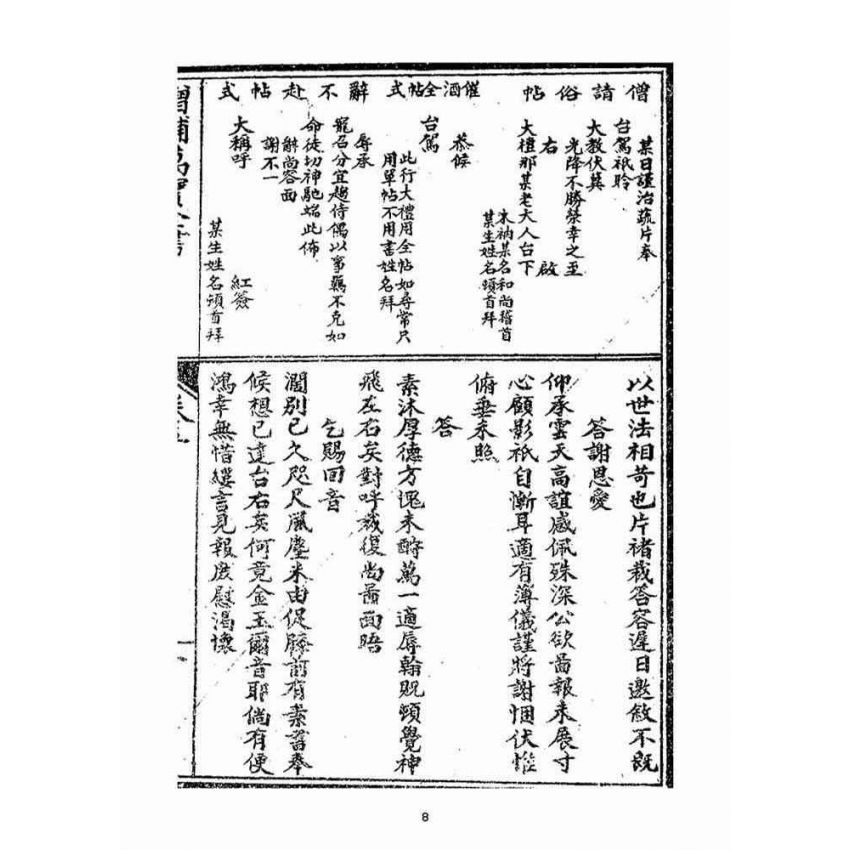 僧請俗帖
某日謹治疏片奉
台駕祇聆
大教伏冀
光降不勝榮幸之至
右 啟
大檀那某老大人台下
木衲某名和尚稽首
某生姓名頓首拜
催酒全帖式
恭候
台駕
此行大禮用全帖如尋常只
用單帖不用書姓名拜
辭不赴帖式
辱承
寵召分宜趨侍偶以事羈不克如
命徒切神馳端此佈
辭尚容面
謝不一
大稱呼
紅簽
某生姓名頓首拜
以世法相苛也片褚裁答容遲日邀敘不既
答謝恩愛
仰承雲天高誼感佩殊深公欲啚報未展寸
心顧影祇自慚耳適有薄儀謹將謝悃伏惟
俯垂末照
答
素沐厚德方愧未酧萬一適辱翰貺頓覺神
飛左右矣對呼裁復尚啚面晤
乞賜回音
濶別已久咫尺風塵未由促膝前有素啚奉
候想已達台右矣何竟金玉爾音耶倘有便
鴻幸無惜縷言見報庶慰渴懷
增補萬寶全書
8